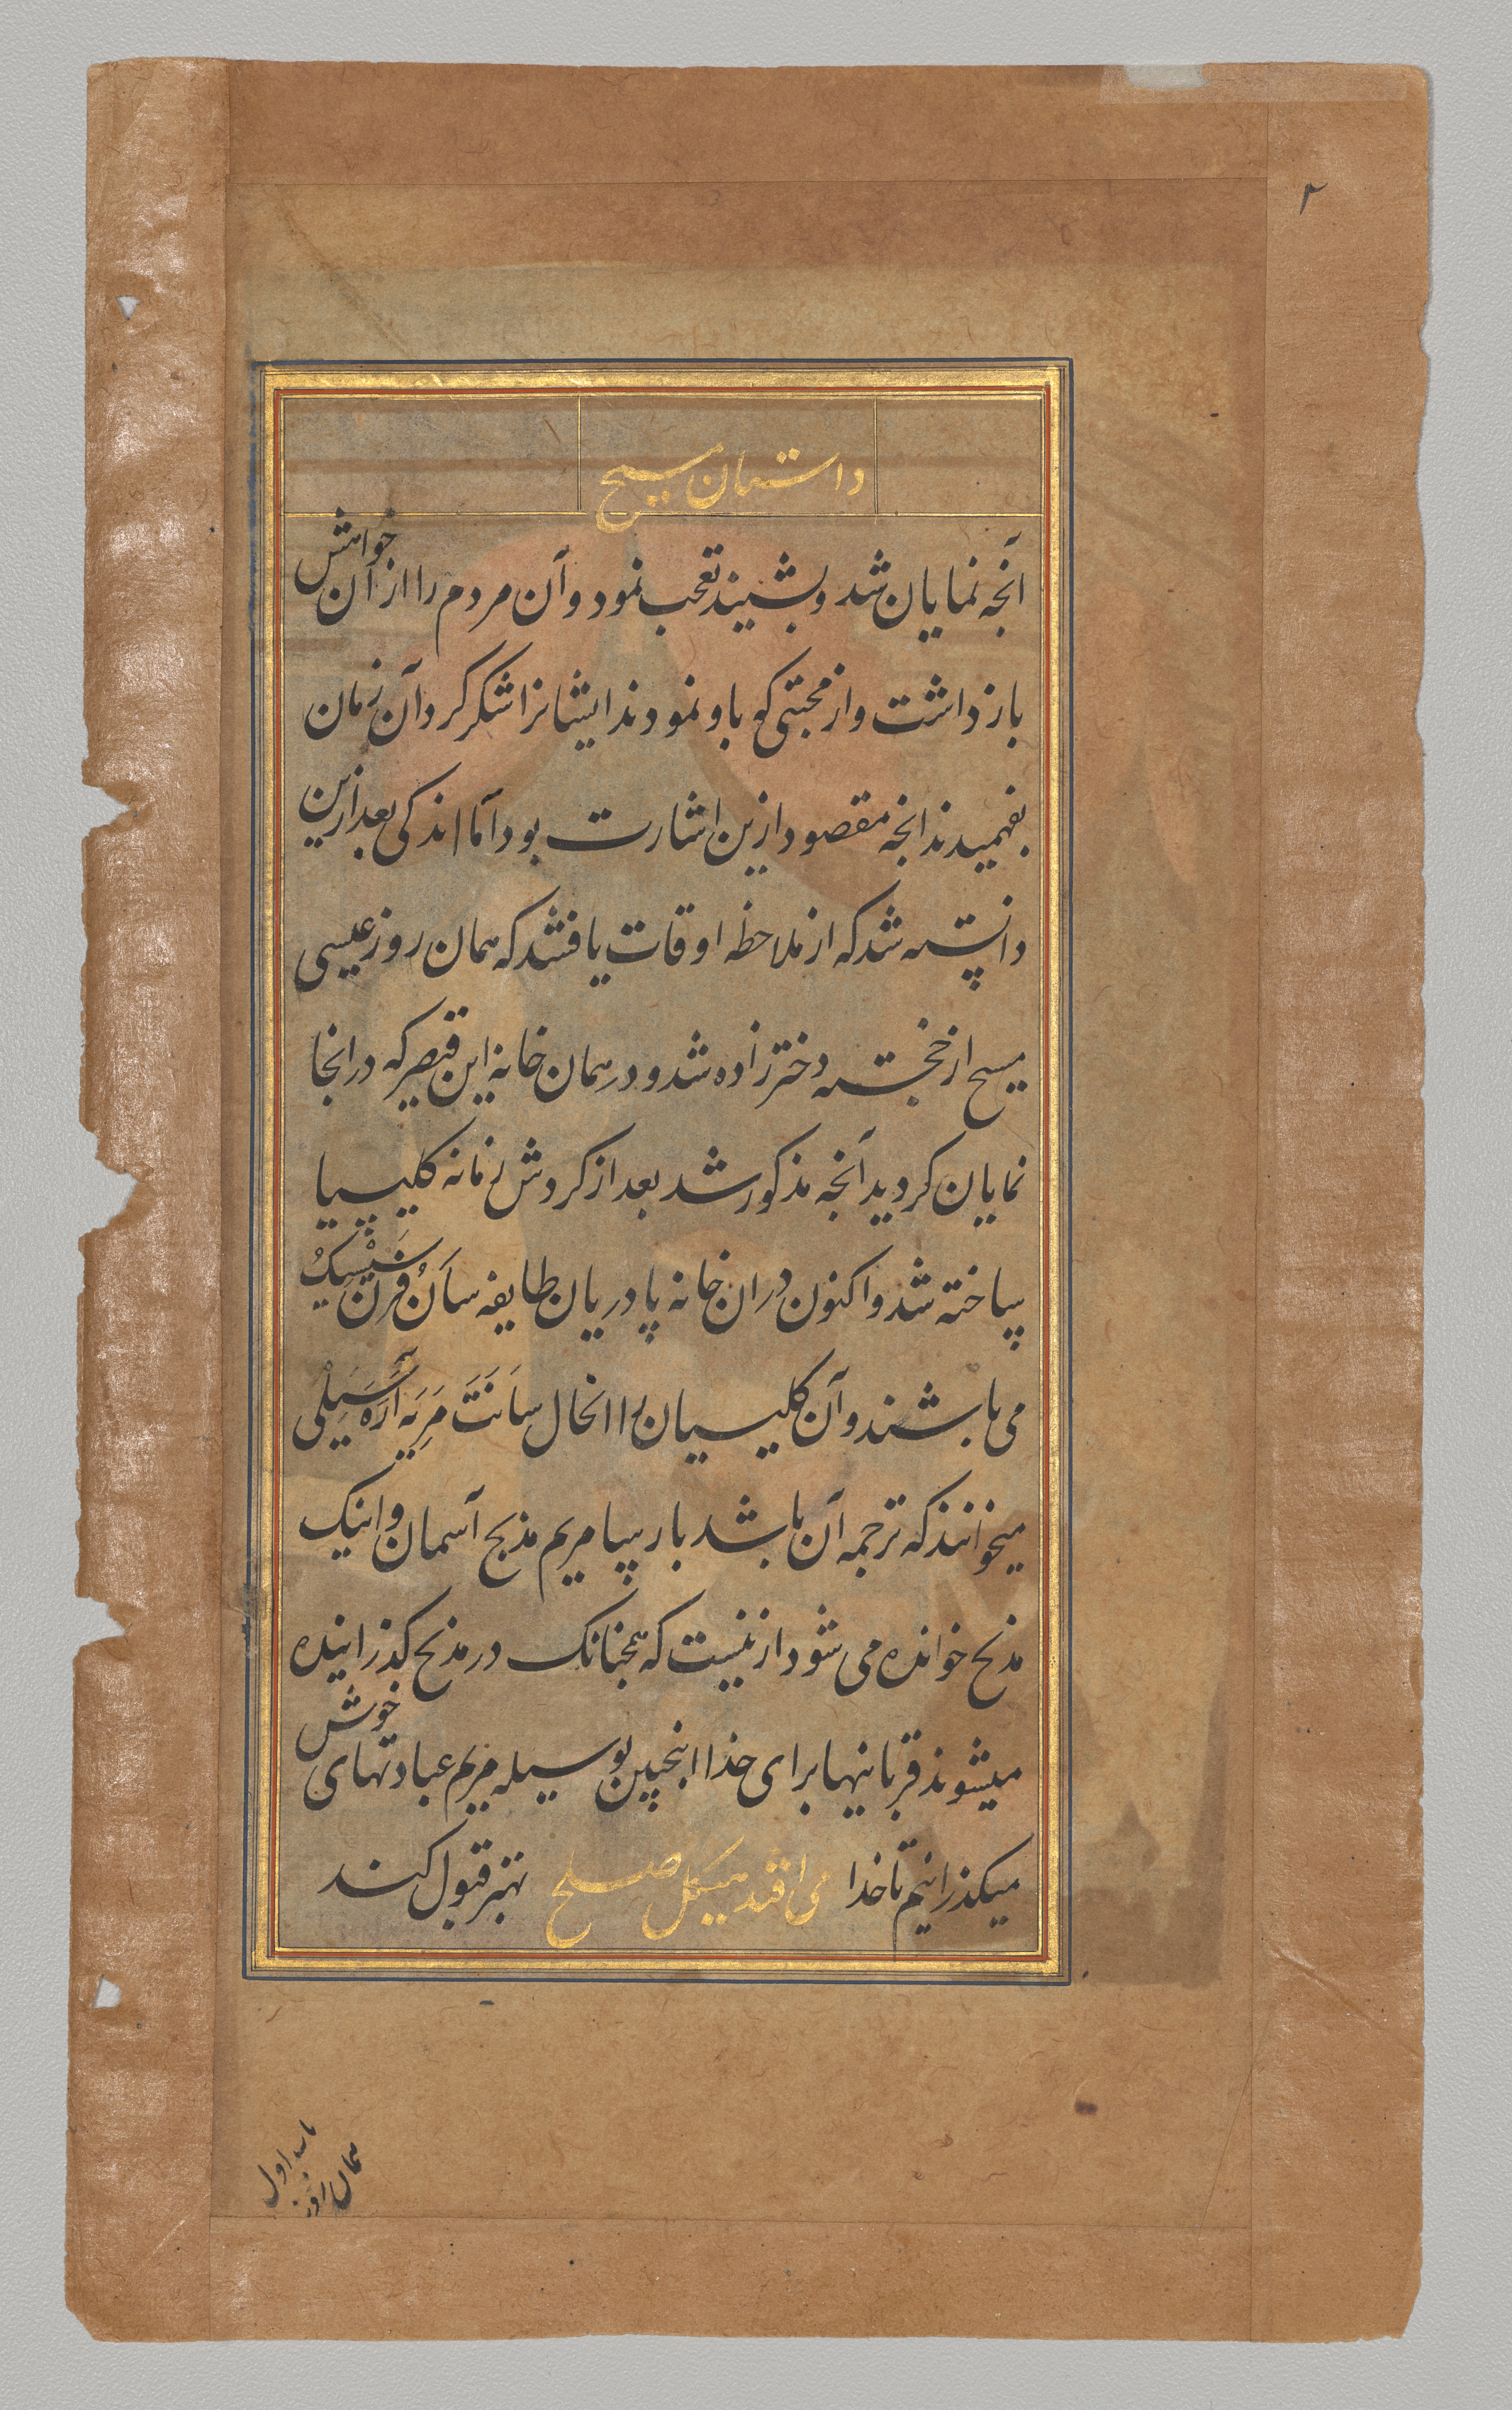 ۲
داستان مسیح
آنچه نمایان شد و بشنید تعجب نمود و آن مردم را از آن خواهش
باز داشت و از محبتی که باو نمودند ایشانرا شکر کرد آن زمان
بفهمیدند انچه مقصود ازین اشارت بود اما اندکی بعد ازین
دانسته شد که از ملاحظه اوقات یافتند که همان روز عیسی
مسیح از خجسته دختر زاده شد و در همان خانه این قیصر که در انجا
نمایان کردید آنچه مذکور شد بعد از کردش زمانه کلیسیا
ساخته شد و اکنون دران خانه پادریان طایفه سان فرنسیسک
می باشند و آن کلیسیان را الحال سانت مریه آره سیلی
میخوانند که ترجمه آن باشد بارسا مریم مذبح آسمان و اینک
مذبح خوانده می شود ازینست که همچنانک در مذبح کذرانیده
میشوند قربانیها برای خدا اینچنین بوسیله مریم عبادتهای خوش
میکذرانیم تا خدا می افتد هیکل صلح بهتر قبول کند
باب اول
همان روز